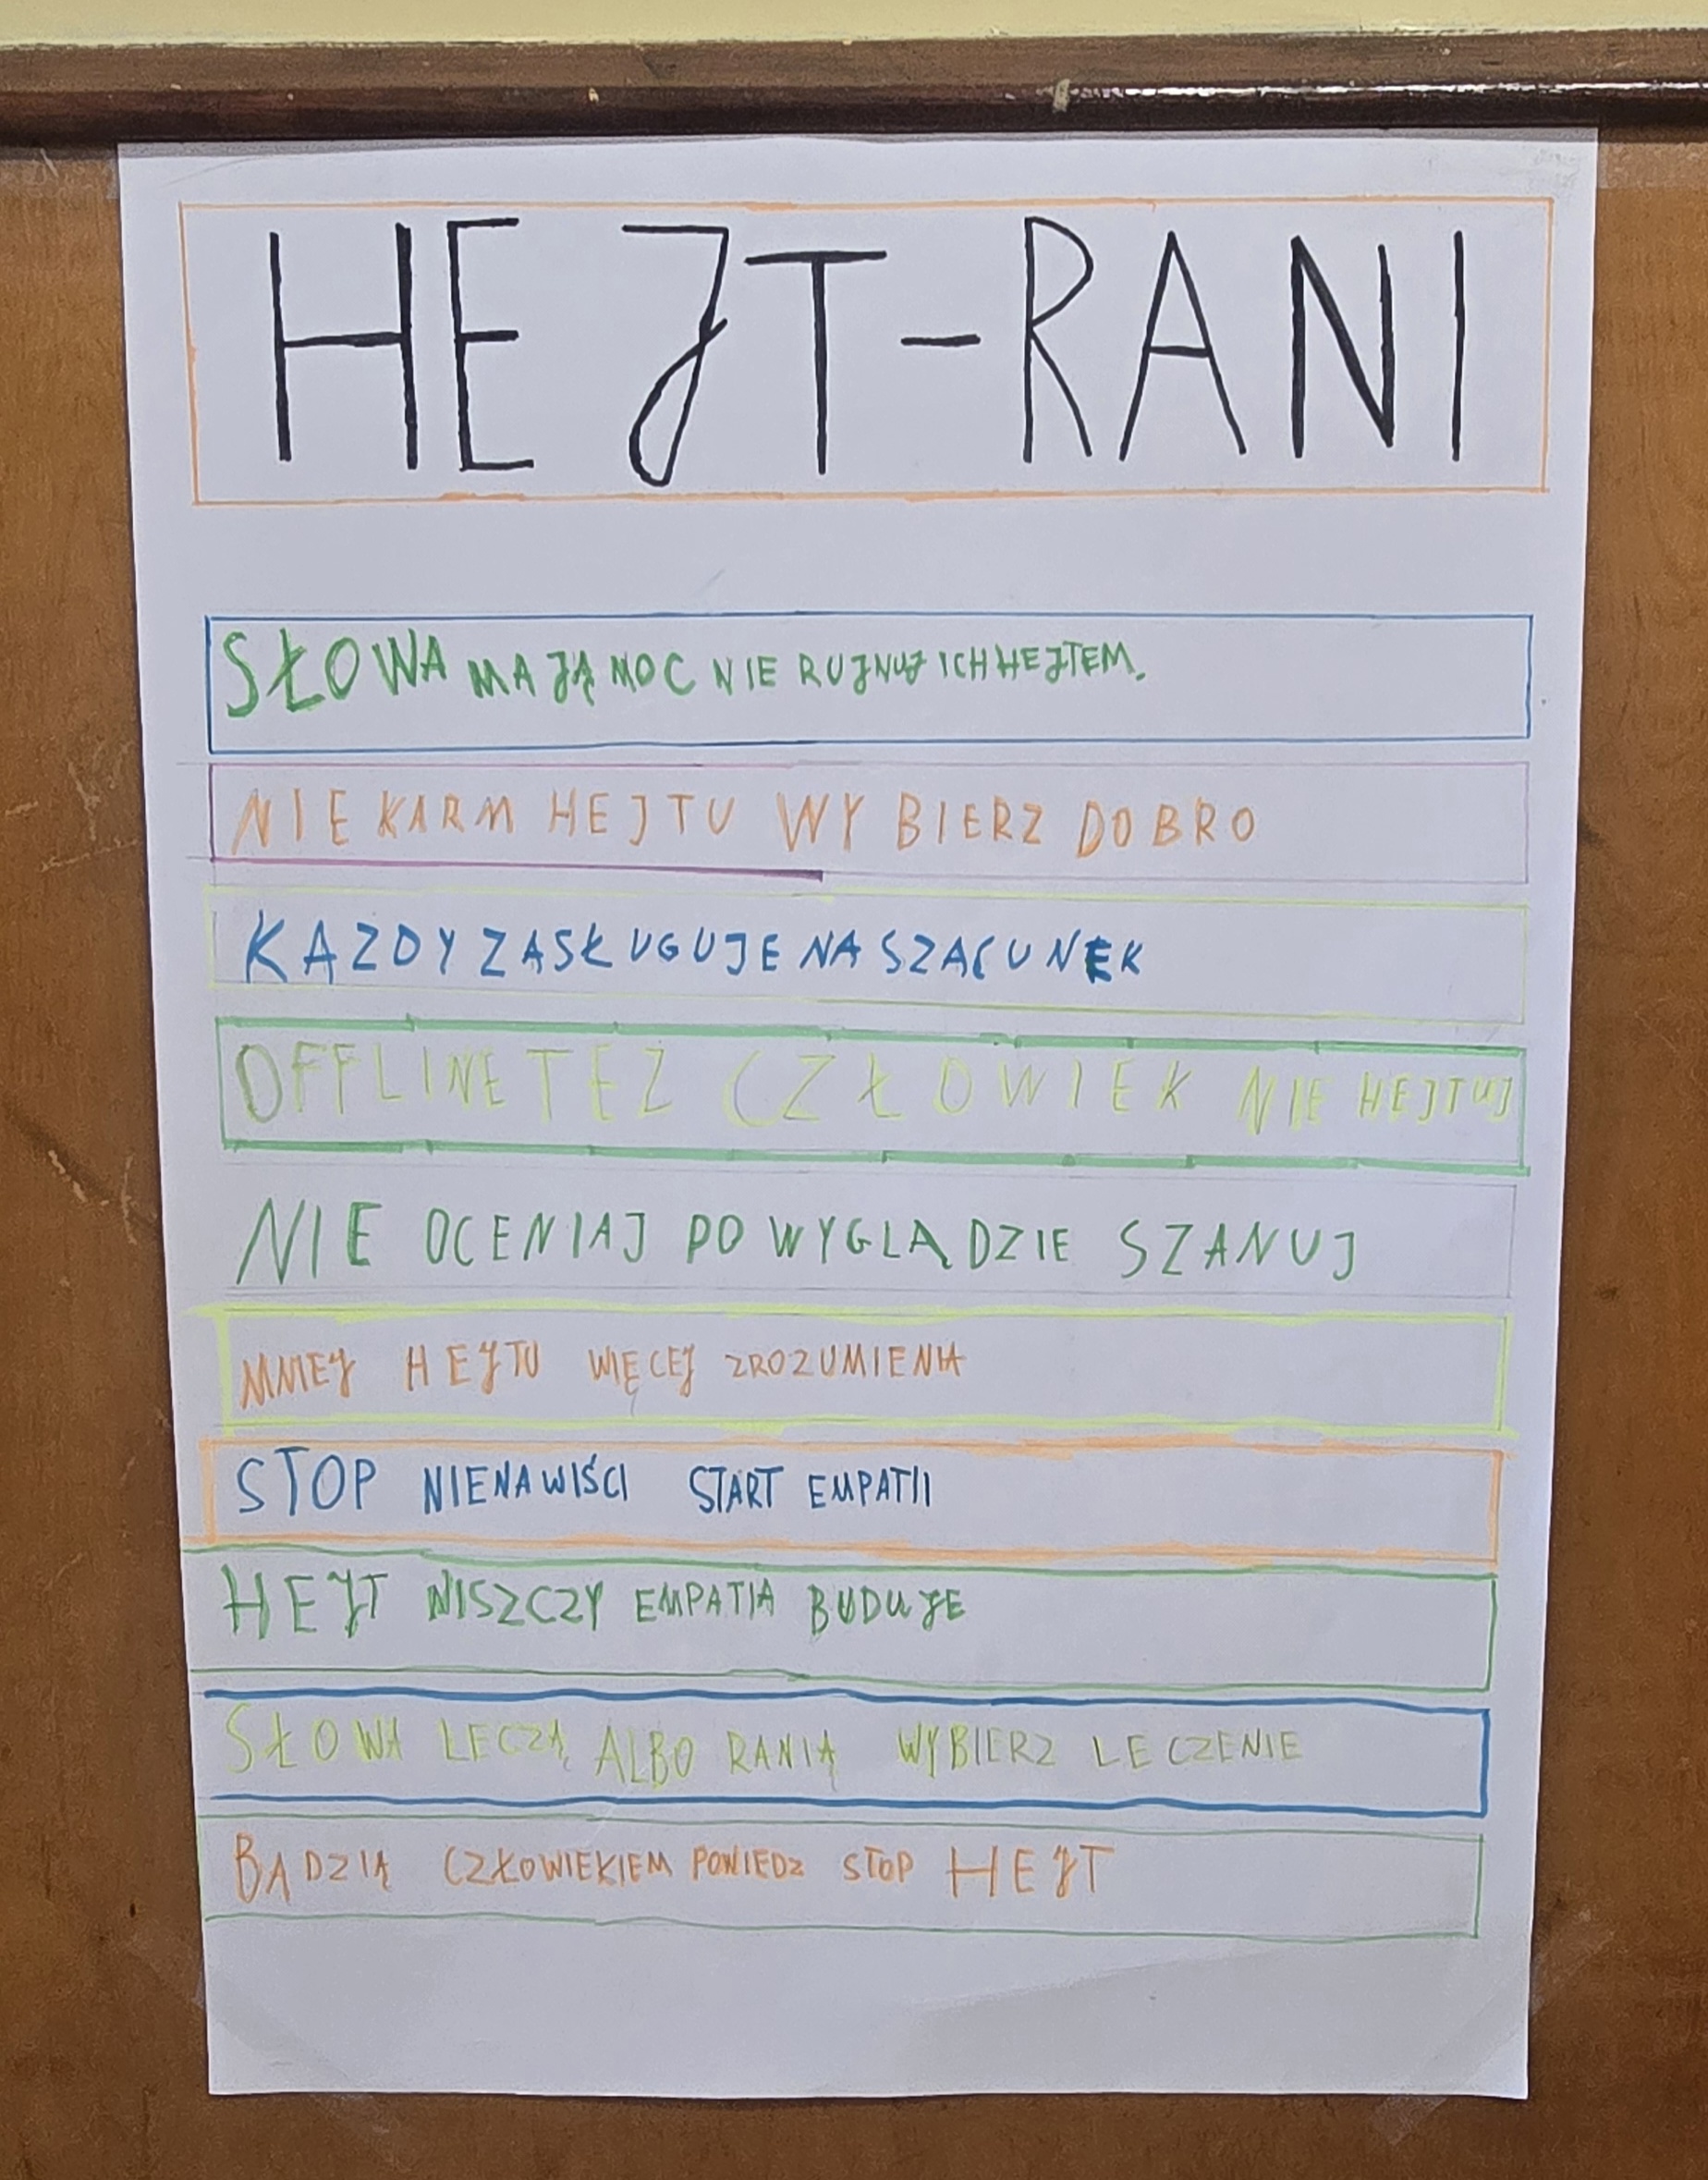 HEJT-RANI
SŁOWA MAJĄ MOC NIE RUJNUJ ICH HEJTEM.
NIE KARM HEJTU WYBIERZ DOBRO
KAZDY ZASŁUGUJE NA SZACUNEK
OFFLINE TEZ CZŁOWIEK NIE HEJTUJ
NIE OCENIAJ PO WYGLĄDZIE SZANUJ
MNIEJ HEJTU WIĘCEJ ZROZUMIENIA
STOP NIENAWIŚCI START EMPATII
HEJT NISZCZY EMPATIA BUDUJE
SŁOWA LECZĄ ALBO RANIĄ WYBIERZ LECZENIE
BĄDZIĄ CZŁOWIEKIEM POWIEDZ STOP HEJT